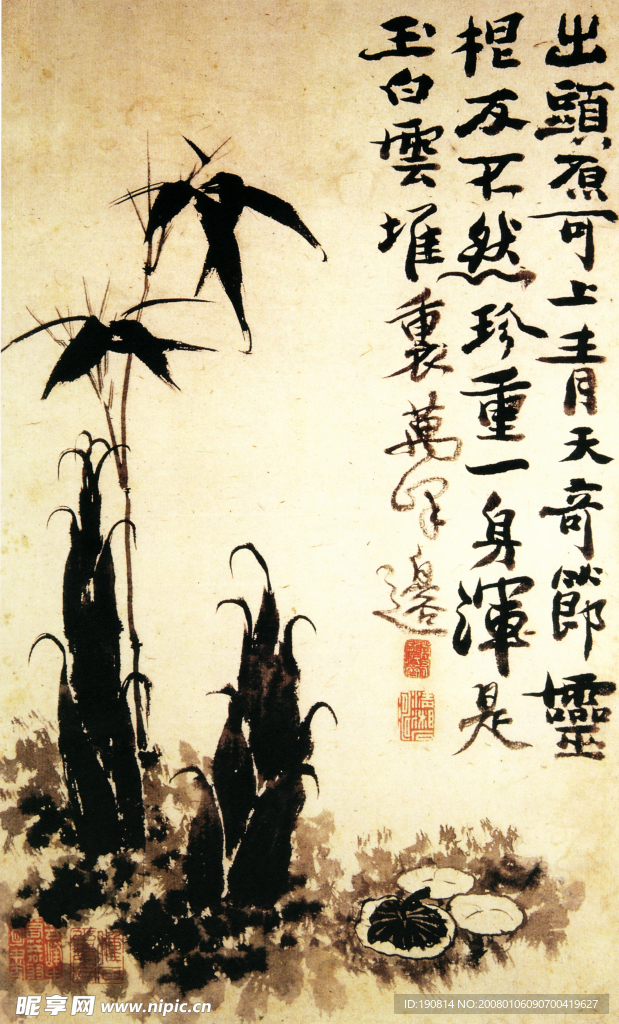 出頭原可上青天奇節靈
根反不然珍重一身渾是
玉白雲堆裏萬峰邊
昵享网 www.nipic.cn
ID:190814 NO:20080106090700419627